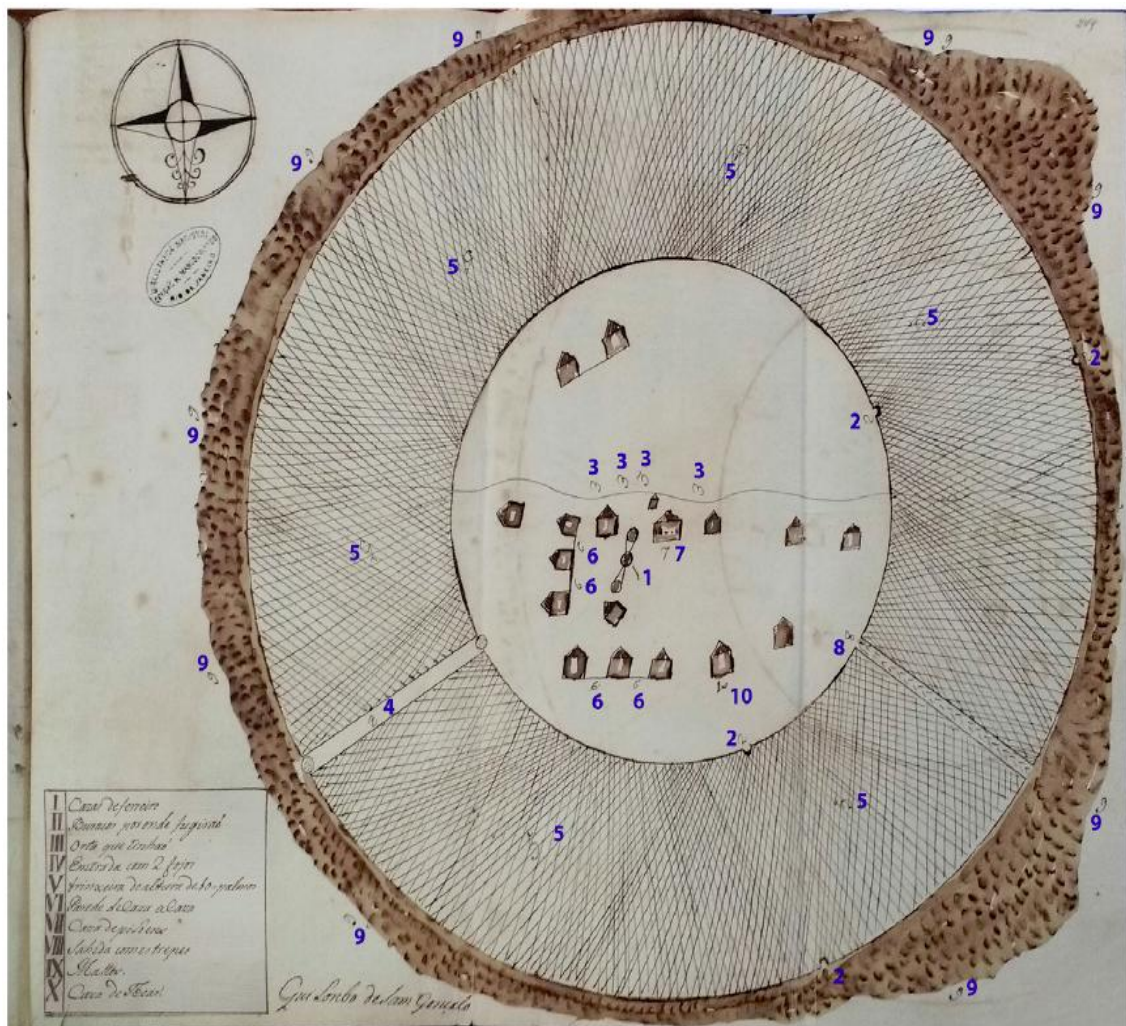 249
9 9
9 9
5
5
5
2
2
3 3 3 3
9
6 7
1
6
5
8
9
10
6 6
4
2
5
9
5
9
2
9
BIBLIOTHECA NACIONAL
RIO DE JANEIRO
I Cazas de ferreiro
II Buracos por onde fugiraõ
III Orta que tinhaõ
IV Entrada com 2 fojos
V trincheira de altura de 10 palmos
VI Parede de Caza a Caza
VII Caza de
VIII Sahida com estrepes
IX Mattos.
X Caza de Tear.
Quilombo de Sam Gonçalo